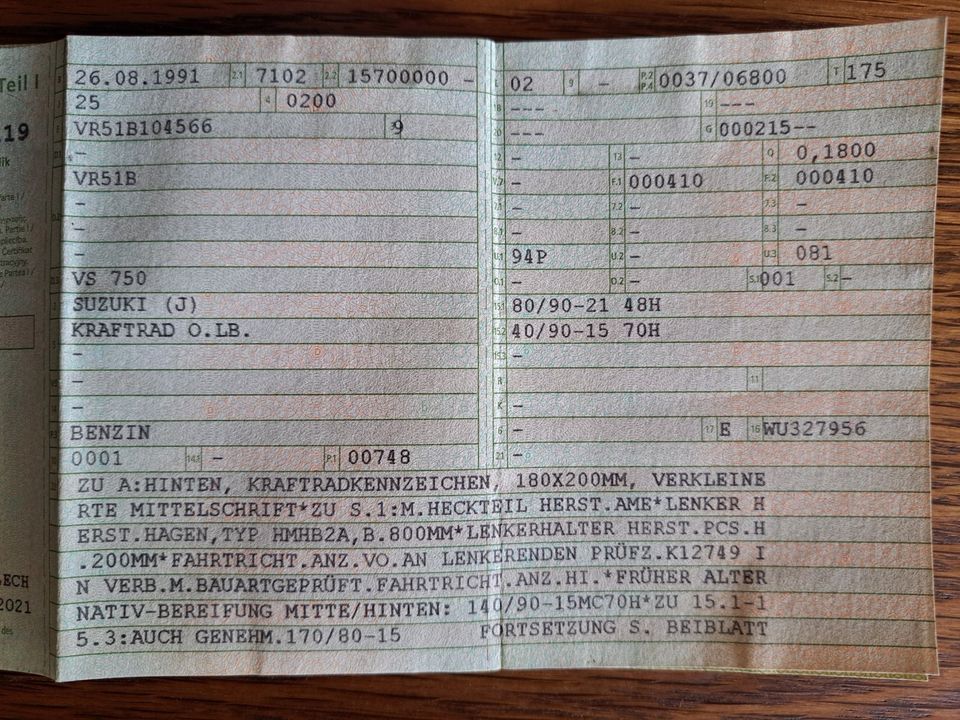 Teil I
26.08.1991 2.1 7102 2.2 15700000 -
25 4 0200
VR51B104566 9
-
VR51B
-
-
-
VS 750
SUZUKI (J)
KRAFTRAD O.LB.
-
-
-
BENZIN
0001 14.1 - P.1 00748
L 02 9 - P.2 P.4 0037/06800 T 175
18 --- 19 ---
20 --- G 000215--
12 - 13 - Q 0,1800
V.7 - F.1 000410 F.2 000410
7.1 - 7.2 - 7.3 -
8.1 - 8.2 - 8.3 -
U.1 94P U.2 - U.3 081
O.1 - O.2 - S.1 001 S.2 -
15.1 80/90-21 48H
15.2 40/90-15 70H
15.3 -
R 11
K -
6 - 17 E 16 WU327956
21 -
ZU A:HINTEN, KRAFTRADKENNZEICHEN, 180X200MM, VERKLEINE
RTE MITTELSCHRIFT*ZU S.1:M.HECKTEIL HERST.AME*LENKER H
ERST.HAGEN,TYP HMHB2A,B.800MM*LENKERHALTER HERST.PCS.H
.200MM*FAHRTRICHT.ANZ.VO.AN LENKERENDEN PRÜFZ.K12749 I
N VERB.M.BAUARTGEPRÜFT.FAHRTRICHT.ANZ.HI.*FRÜHER ALTER
NATIV-BEREIFUNG MITTE/HINTEN: 140/90-15MC70H*ZU 15.1-1
5.3:AUCH GENEHM.170/80-15 FORTSETZUNG S. BEIBLATT
19
LECH
2021